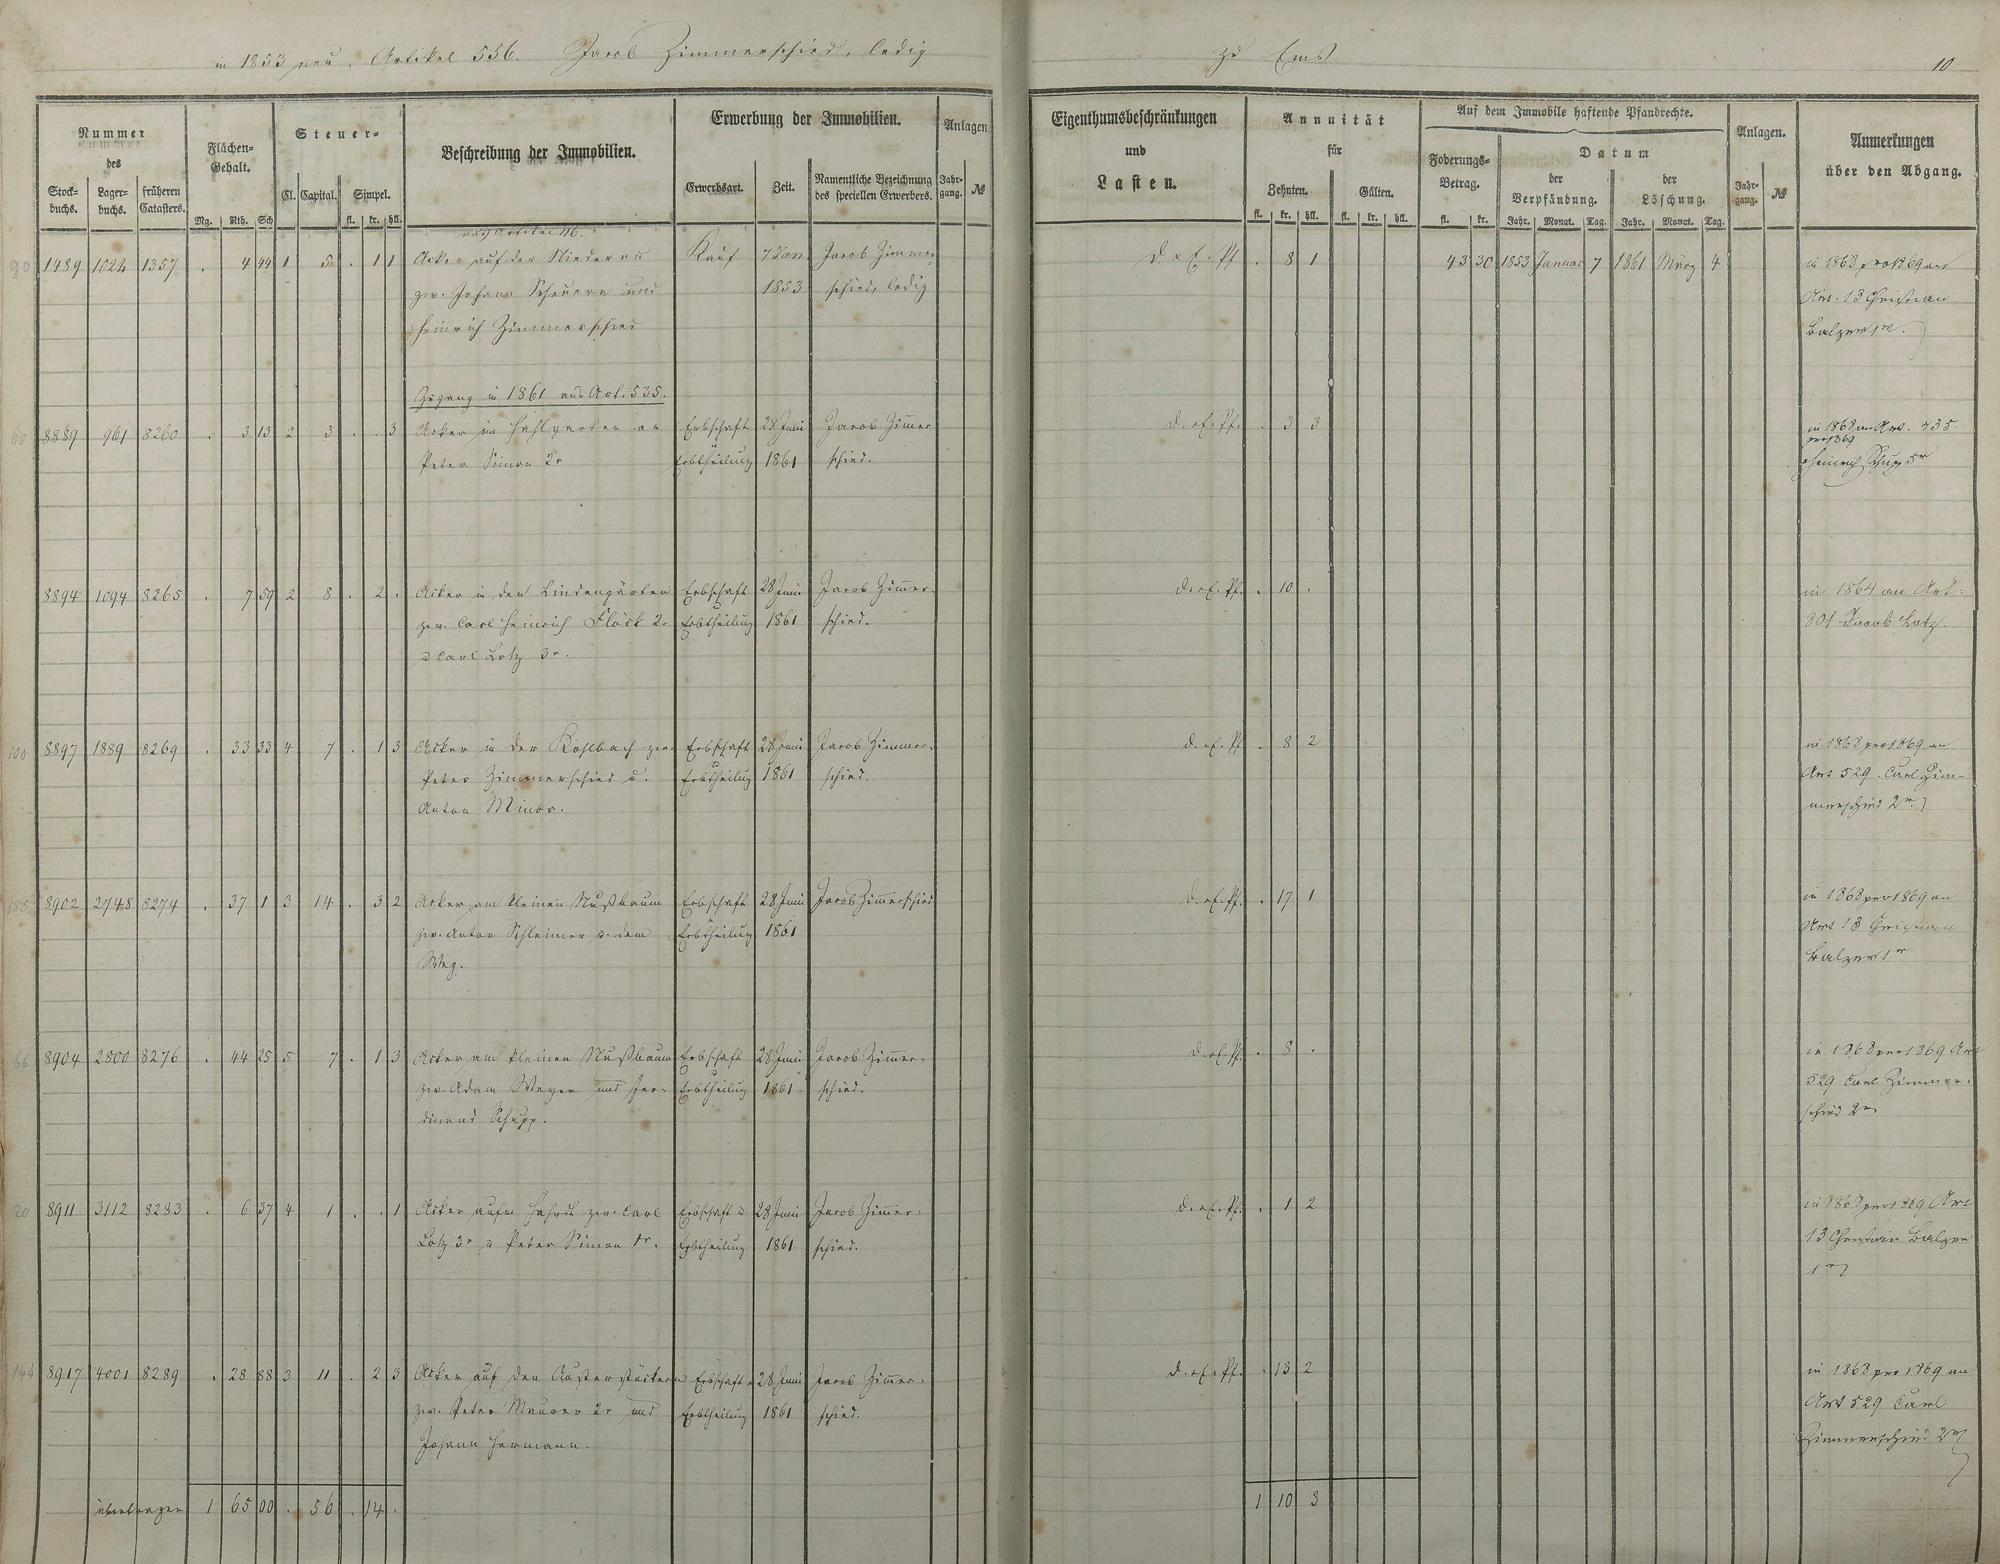 in 1853 neu. Artikel 556. Jacob Zimmerschied, ledig zu Ems
10
Nummer des
Stockbuchs. Lagerbuchs. früheren Catasters.
Flächen-Gehalt.
Mg. Rth. Sch
Steuer-
Cl. Capital. Simpel.
fl. kr. hll.
Beschreibung der Immobilien.
Erwerbung der Immobilien.
Erwerbsart. Zeit. Namentliche Bezeichnung des speciellen Erwerbers.
Anlagen
Jahrgang. №
Eigenthumsbeschränkungen und Lasten.
Annuität für
Zehnten. Gülten.
fl. kr. hll. fl. kr. hll.
Auf dem Immobile haftende Pfandrechte.
Foderungs-Betrag.
fl. kr.
Datum
der Verpfändung. der Löschung.
Jahr. Monat. Tag. Jahr. Monat. Tag.
Anlagen.
Jahrgang. №
Anmerkungen über den Abgang.
Artikel 116.
90 1489 1024 1357 . 4 44 1 5 . 1 1 Acker auf der Niederau Kauf 7 Jan. Jacob Zimmer- D. x E. Pf . 8 1 43 30 1853 Januar 7 1861 März 4 in 1868 pro 1869 an
zw. Johann Scheuern und 1853 schied, ledig Art. 13 Christian
Heinrich Zimmerschied Balzer 1r.
Zugang in 1861 aus Art. 535.
60 8889 961 8260 . 3 13 2 3 . . 3 Acker im Hahlgarten an Erbschaft 28 Juni Jacob Zimer D. x E. Pf. . 3 3 in 1868 an Art. 435
pro 1869
Peter Simon 2r Erbtheilung 1861 schied. Heinrich Schupp 5r
8894 1094 8265 . 7 59 2 8 . 2 . Acker in den Lindengärten Erbschaft 28 Juni Jacob Zimer- D. x E. Pf. . 10 . in 1864 an Art.
zw. Carl Heinrich Flöck 2r Erbtheilung 1861 schied. 801 Jacob Lotz.
u Carl Lotz 3r.
100 8897 1889 8269 . 33 33 4 7 . 1 3 Acker in der Kohlbach zw. Erbschaft 28 Juni Jacob Zimmer- D. x E. Pf . 8 2 in 1868 pro 1869 an
Peter Zimmerschied u. Erbtheilung 1861 schied. Art 529. Carl Zim-
Anton Minor. merschied 2r.
188 8902 2748 8274 . 37 1 3 14 . 3 2 Acker am kleinen Nußbaum Erbschaft 28 Juni Jacob Zimerschied D. x E. Pf. . 17 1 in 1868 pro 1869 an
zw. Anton Schleimer u. dem Erbtheilung 1861 Art 13 Christian
Weg. Balzer 1r
66 8904 2800 8276 . 44 25 5 7 . 1 3 Acker am kleinen Nußbaum Erbschaft 28 Juni Jacob Zimer- D. x E. Pf. . 8 . in 1868 pro 1869 Art
zw. Adam Weyer und Fer- Erbtheilung 1861 schied. 529 Carl Zimmer-
dinand Schupp. schied 2r
20 8911 3112 8283 . 6 37 4 1 . . 1 Acker aufm Hahrdt zw. Carl Erbschaft u 28 Juni Jacob Zimer- D. x E. Pf. . 1 2 in 1868 pro 1869 Art
Lotz 3r u Peter Simon 1r. Erbtheilung 1861 schied. 13 Christian Balzer
1r
144 8917 4001 8289 . 28 88 3 11 . 2 3 Acker auf den Austerstöcken Erbschaft u 28 Juni Jacob Zimer- D. x E. Pf. . 13 2 in 1868 pro 1869 an
zw. Peter Maurer 2r und Erbtheilung 1861 schied. Art 529 Carl
Johann Hermann. Zimmerschied 2r
übertragen 1 65 00 . 56 . 14 . 1 10 3